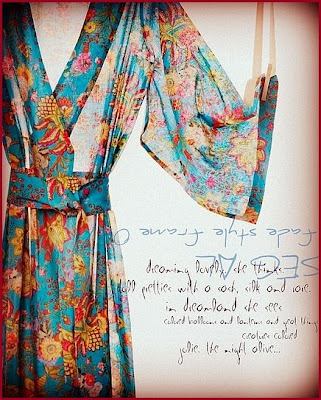 fade style frame
SEPIA
dreaming lovely she thinks
pretties with a sock, silk and
in dreamland she sees
colored balloons and lanterns and great things
creature colored
jolie the night olive...